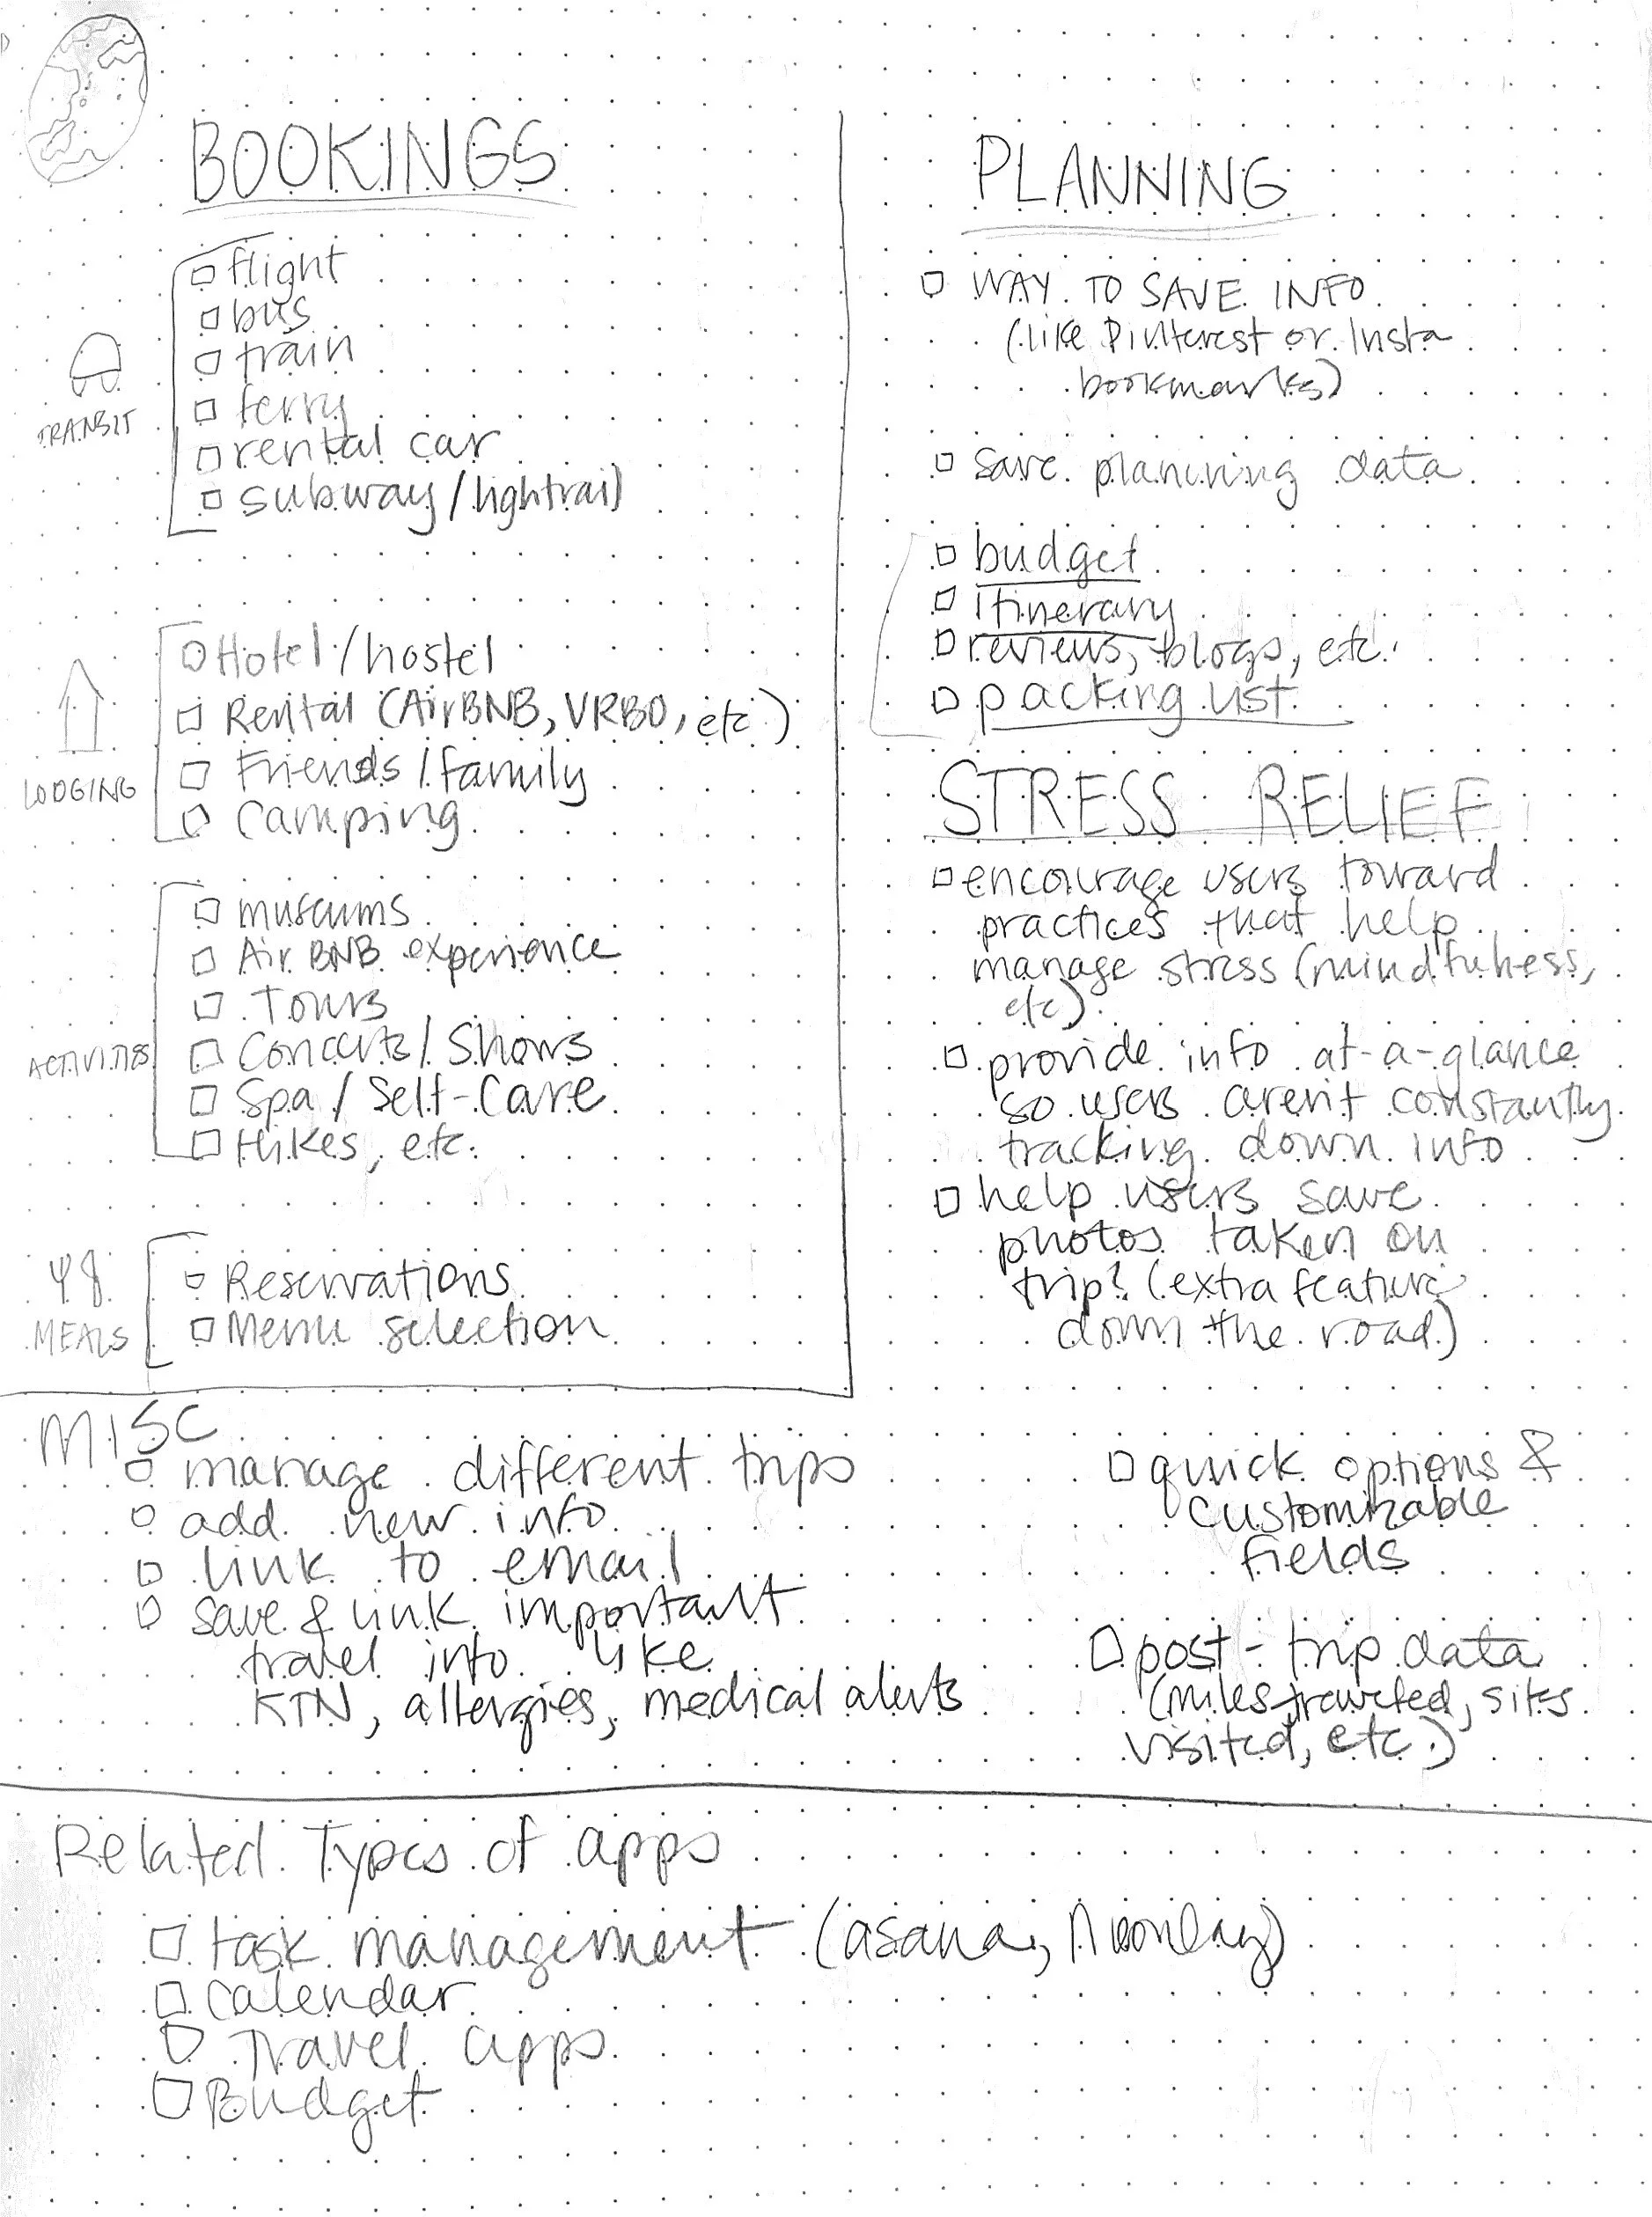 BOOKINGS
TRANSIT
flight
bus
train
ferry
rental car
subway/lightrail
LODGING
Hotel/hostel
Rental (AirBNB, VRBO, etc.)
Friends/family
Camping
ACTIVITIES
museums
AirBNB experience
Tours
Concerts/Shows
Spa/Self-Care
Hikes, etc.
MEALS
Reservations
Menu selection
PLANNING
WAY TO SAVE INFO
(like Pinterest or Insta
bookmarks)
save planning data
budget
itinerary
reviews, blogs, etc.
packing list
STRESS RELIEF
encourage users toward
practices that help
manage stress (mindfulness,
etc)
provide info at-a-glance
so users aren't constantly
tracking down info
help users save
photos taken on
trip? (extra feature
down the road)
MISC
manage different trips
add new info
link to email
save & link important
travel info like
KTN, allergies, medical alerts
quick options &
customizable
fields
post-trip data
(miles traveled, sites
visited, etc.)
Related Types of apps
task management (asana, Monday)
calendar
Travel apps
Budget